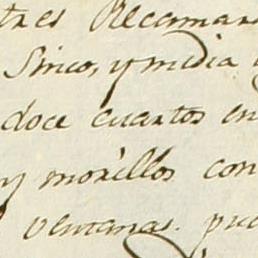 tres Recamar
Sinco, y media
doce cuartos en
y morillos con
ventanas. pue